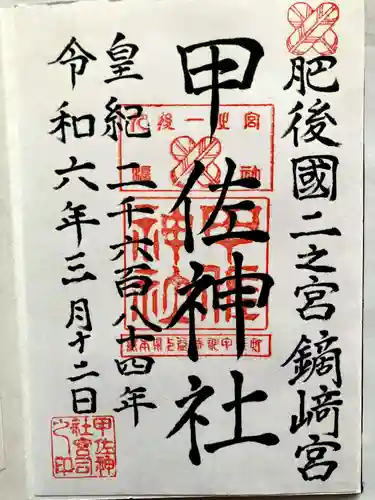 肥後國二之宮鏑﨑宮
甲佐神社
皇紀二千六百八十四年
令和六年三月十二日
甲佐神社
甲佐神
社宮司
之印